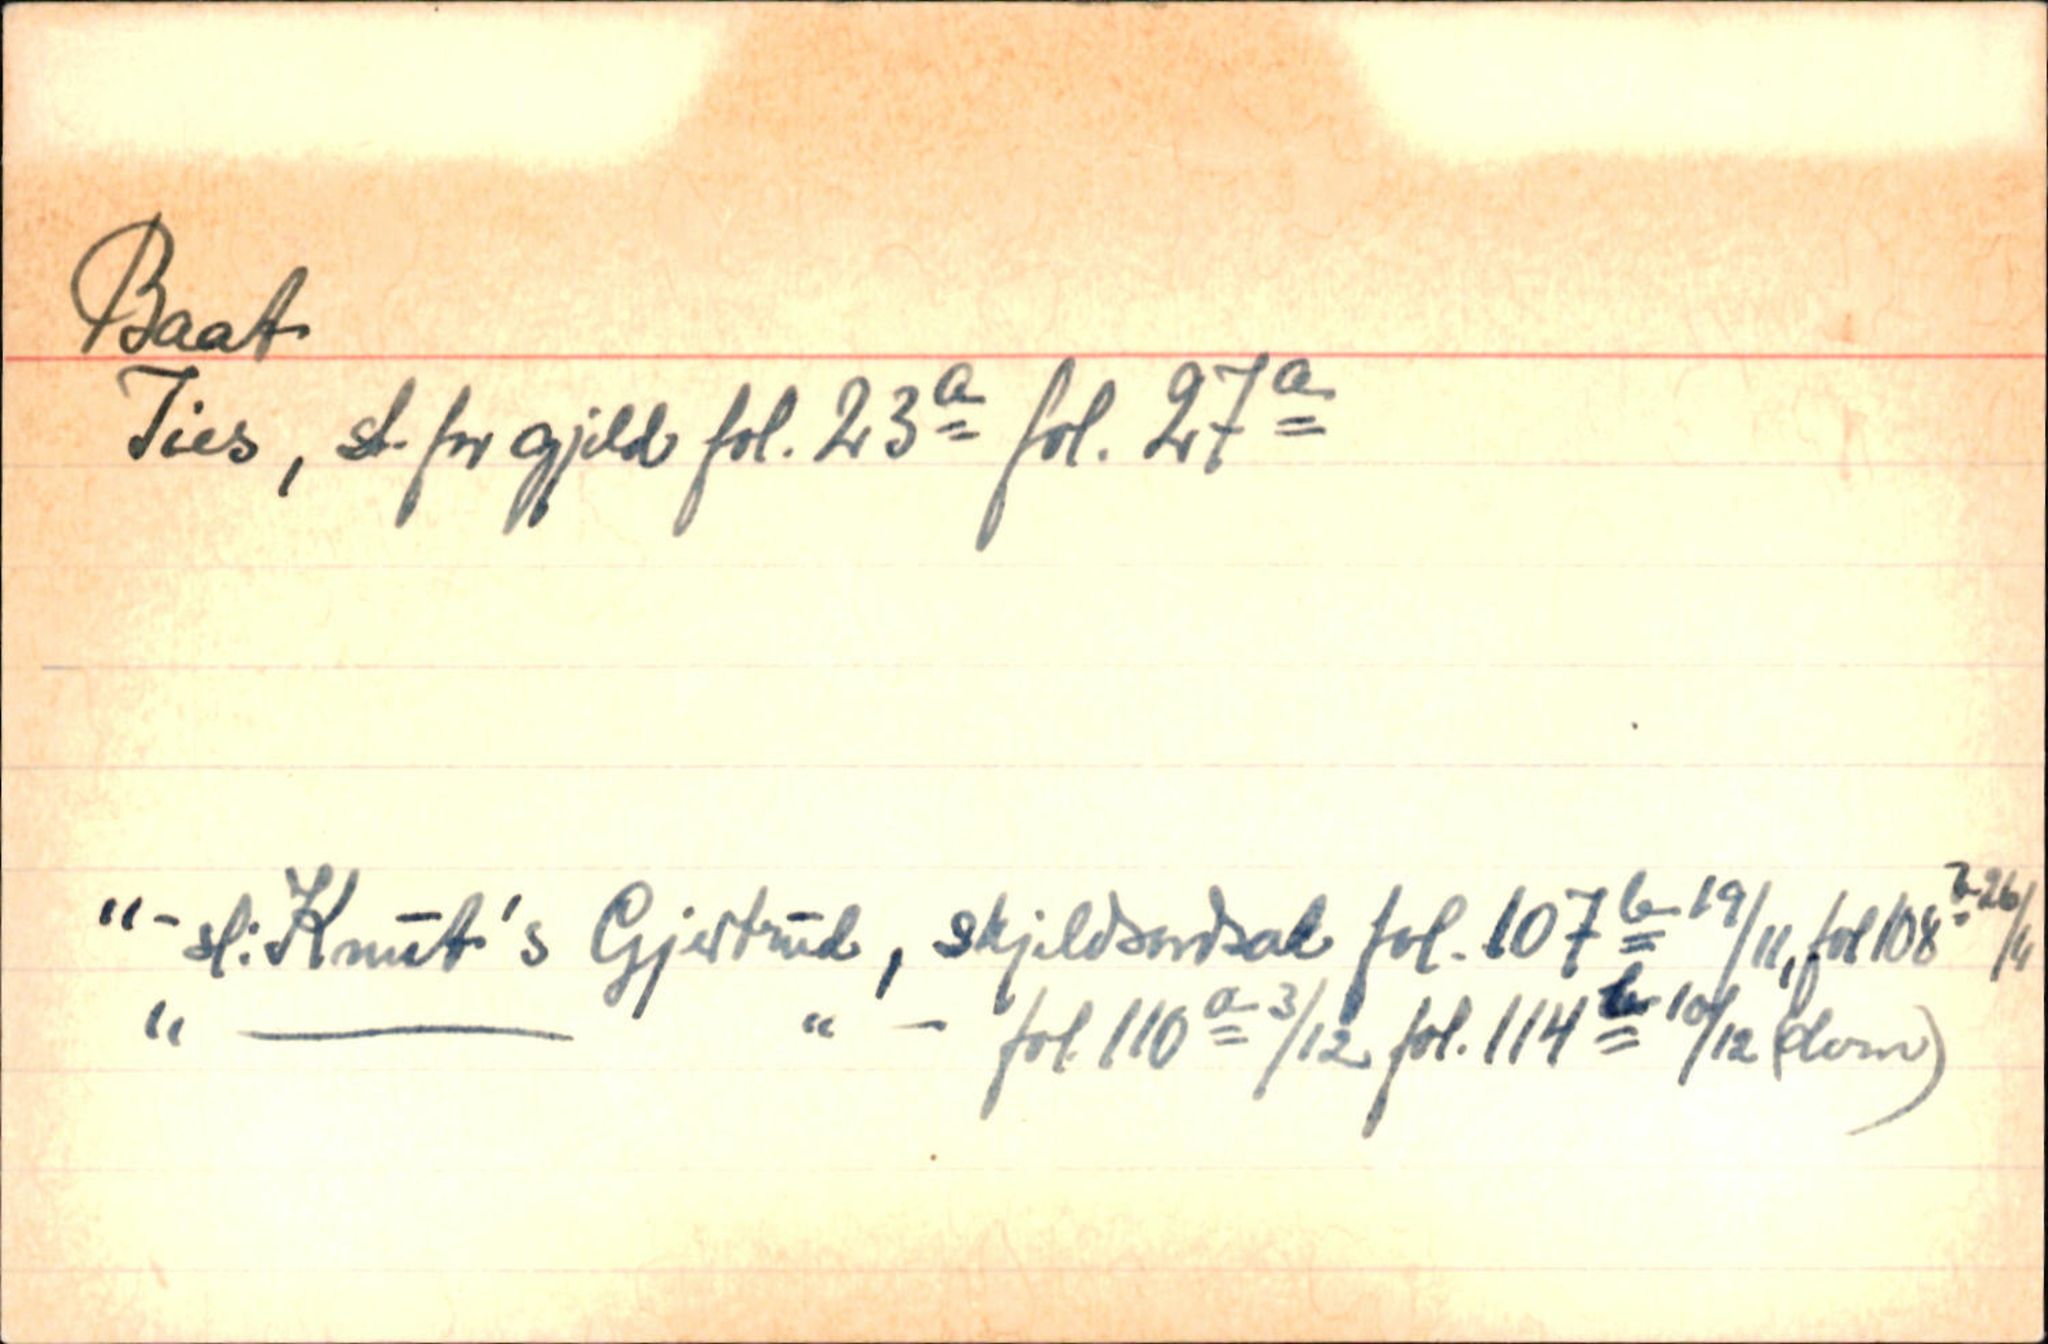 Baat
Ties, st. for gjeld fol. 23a fol. 27a
"- sl: Knut's Gjertrud, skjeldsordsak fol. 107b 19/11, fol 108b 26/11
" — " - fol. 110a 3/12 fol. 114b 10/12 (dom)